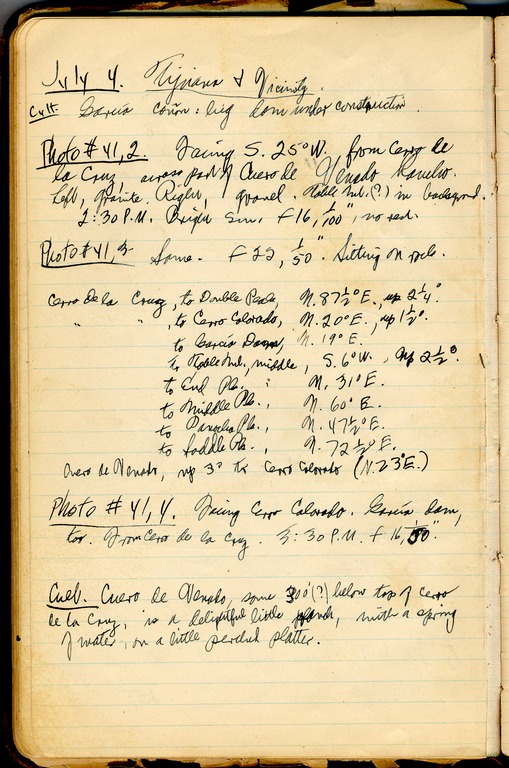 July 4. Tijuana & Vicinity.
Cult. García cañon: big dam under construction.
Photo # 41, 2. Facing S. 25° W. from Cerro de
la Cruz, across part of Cuero de Venado Rancho.
Left, granite. Right, gravel. Table Mt. (?) in background.
2:30 P.M. Bright Sun. f 16, 1/100", no red.
Photo # 41, 3 Same. f 22, 1/50". Sitting on rock.
Cerro de la Cruz, to Double Peak, N. 87½° E., up 2¼°.
" " , to Cerro Colorado, N. 20° E., up 1½°.
to García Dam, N. 19° E.
to Table Mt., middle, S. 6° W., up 2½°.
to End Pk. " N. 31° E.
to Middle Pk., N. 60° E.
to Pk., N. 47½° E.
to Saddle Pk., N. 72½° E.
Cuero de Venado, up 3° to Cerro Colorado (N. 23° E.)
Photo # 41, 4. Facing Cerro Colorado. García dam,
too. From Cerro de la Cruz. 3:30 P.M. f 16, 1/50".
Cult. Cuero de Venado, some 300' (?) below top of cerro
de la Cruz, is a delightful little ranch, with a spring
of water, on a little perched platter.